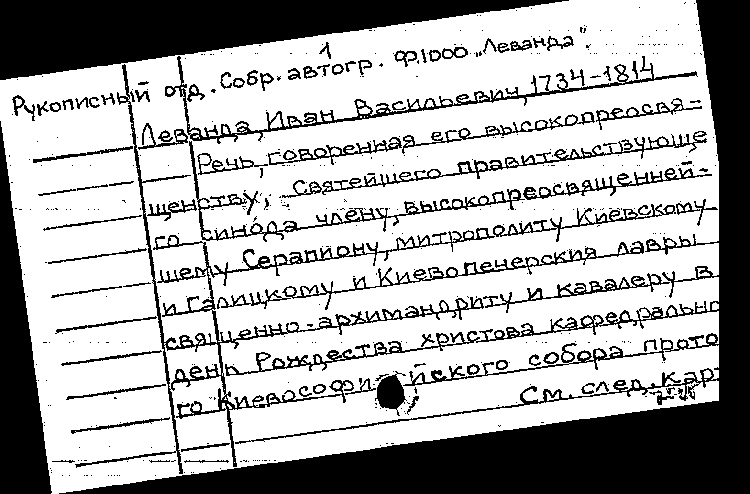 1
Рукописный отд. Собр. автогр. Ф1000 „Леванда".
Леванда, Иван Васильевич, 1734-1814
Речь, говоренная его высокопреосвя-
щенству, Святейшего правительствующе
го синода члену, высокопреосвященней-
шему Серапиону, митрополиту Киевскому
и Галицкому и Киевопечерския лавры
священно-архимандриту и кавалеру в
день Рождества христова кафедрально
го Киевософийского собора прото
См. след. карт